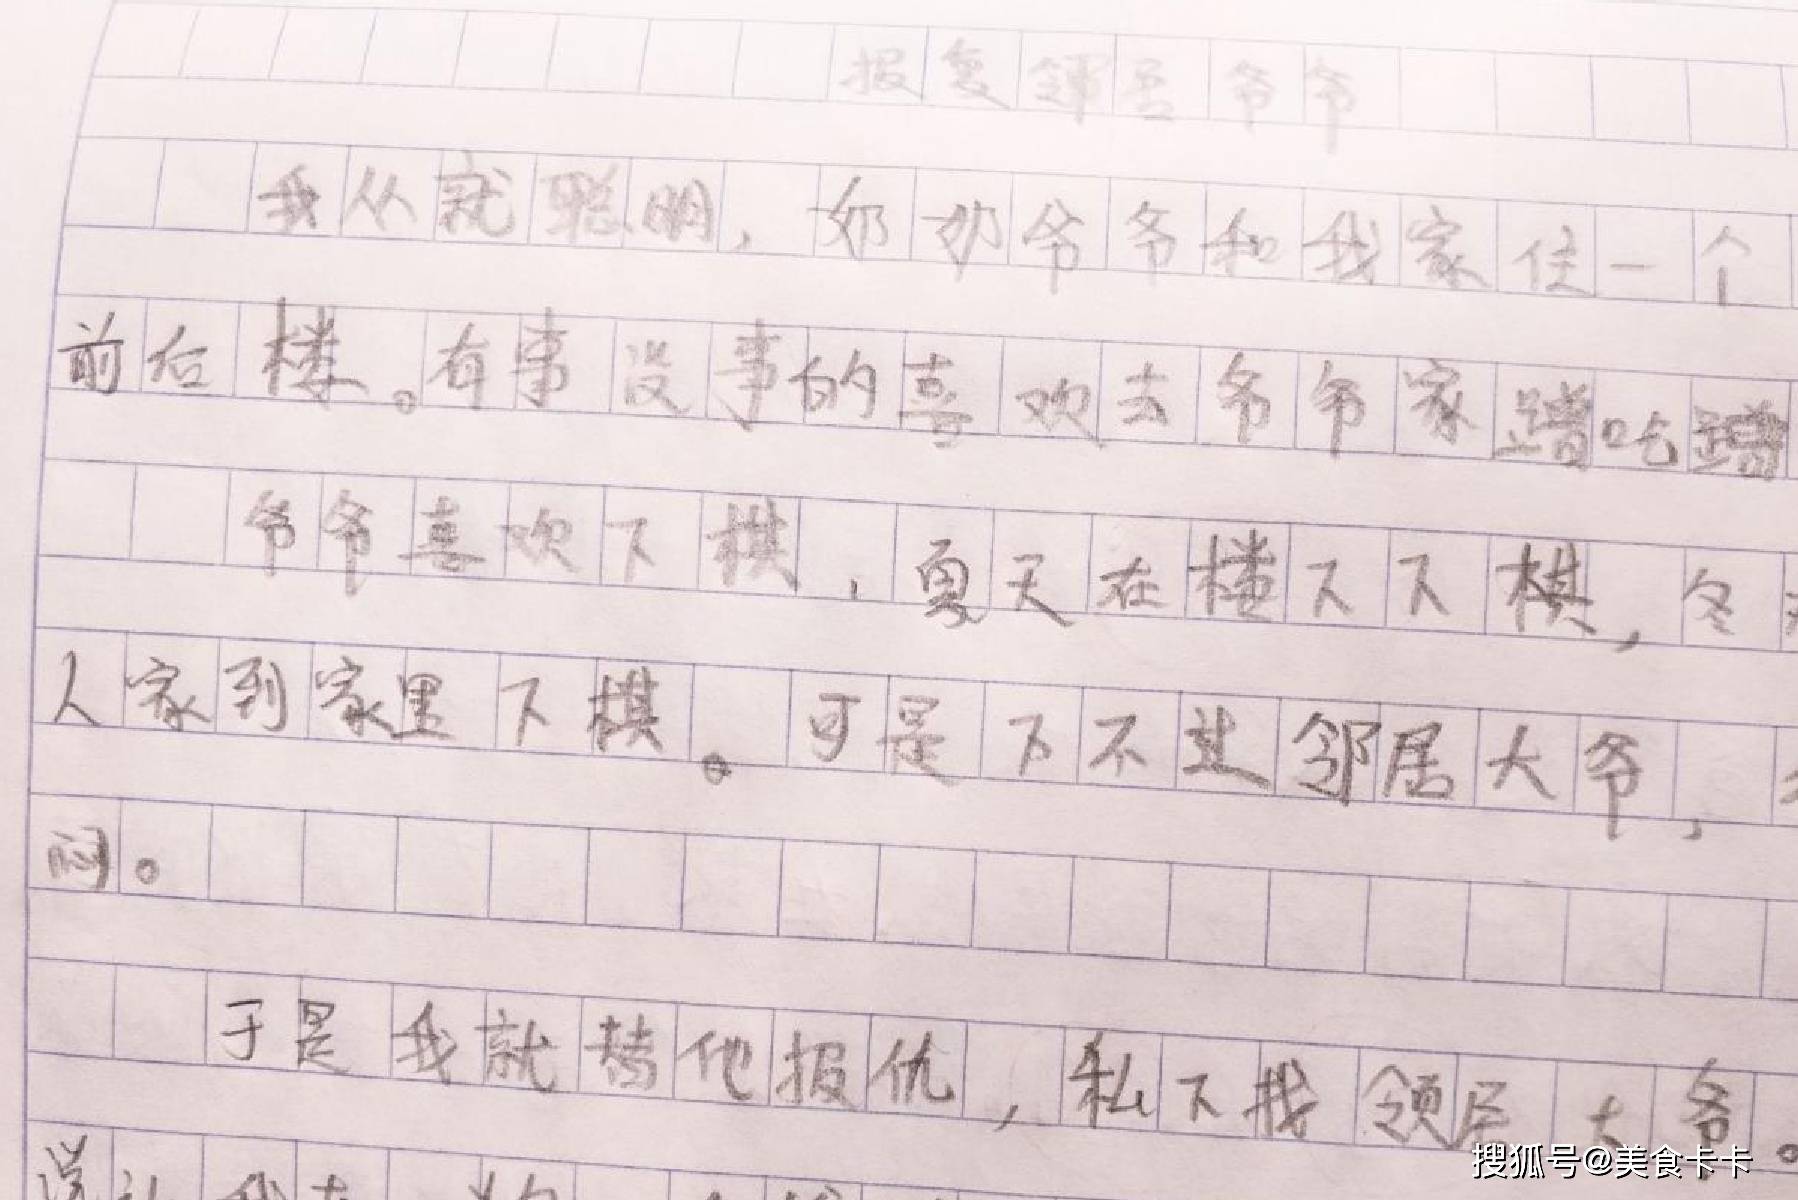 报复邻居爷爷
我从就聪明，奶奶爷爷和我家住一个
前后楼。有事没事的喜欢去爷爷家蹭吃蹭
爷爷喜欢下棋，夏天在楼下下棋，冬
人家到家里下棋。可是下不过邻居大爷，
闷。
于是我就替他报仇，私下找领居大爷。
搜狐号@美食卡卡